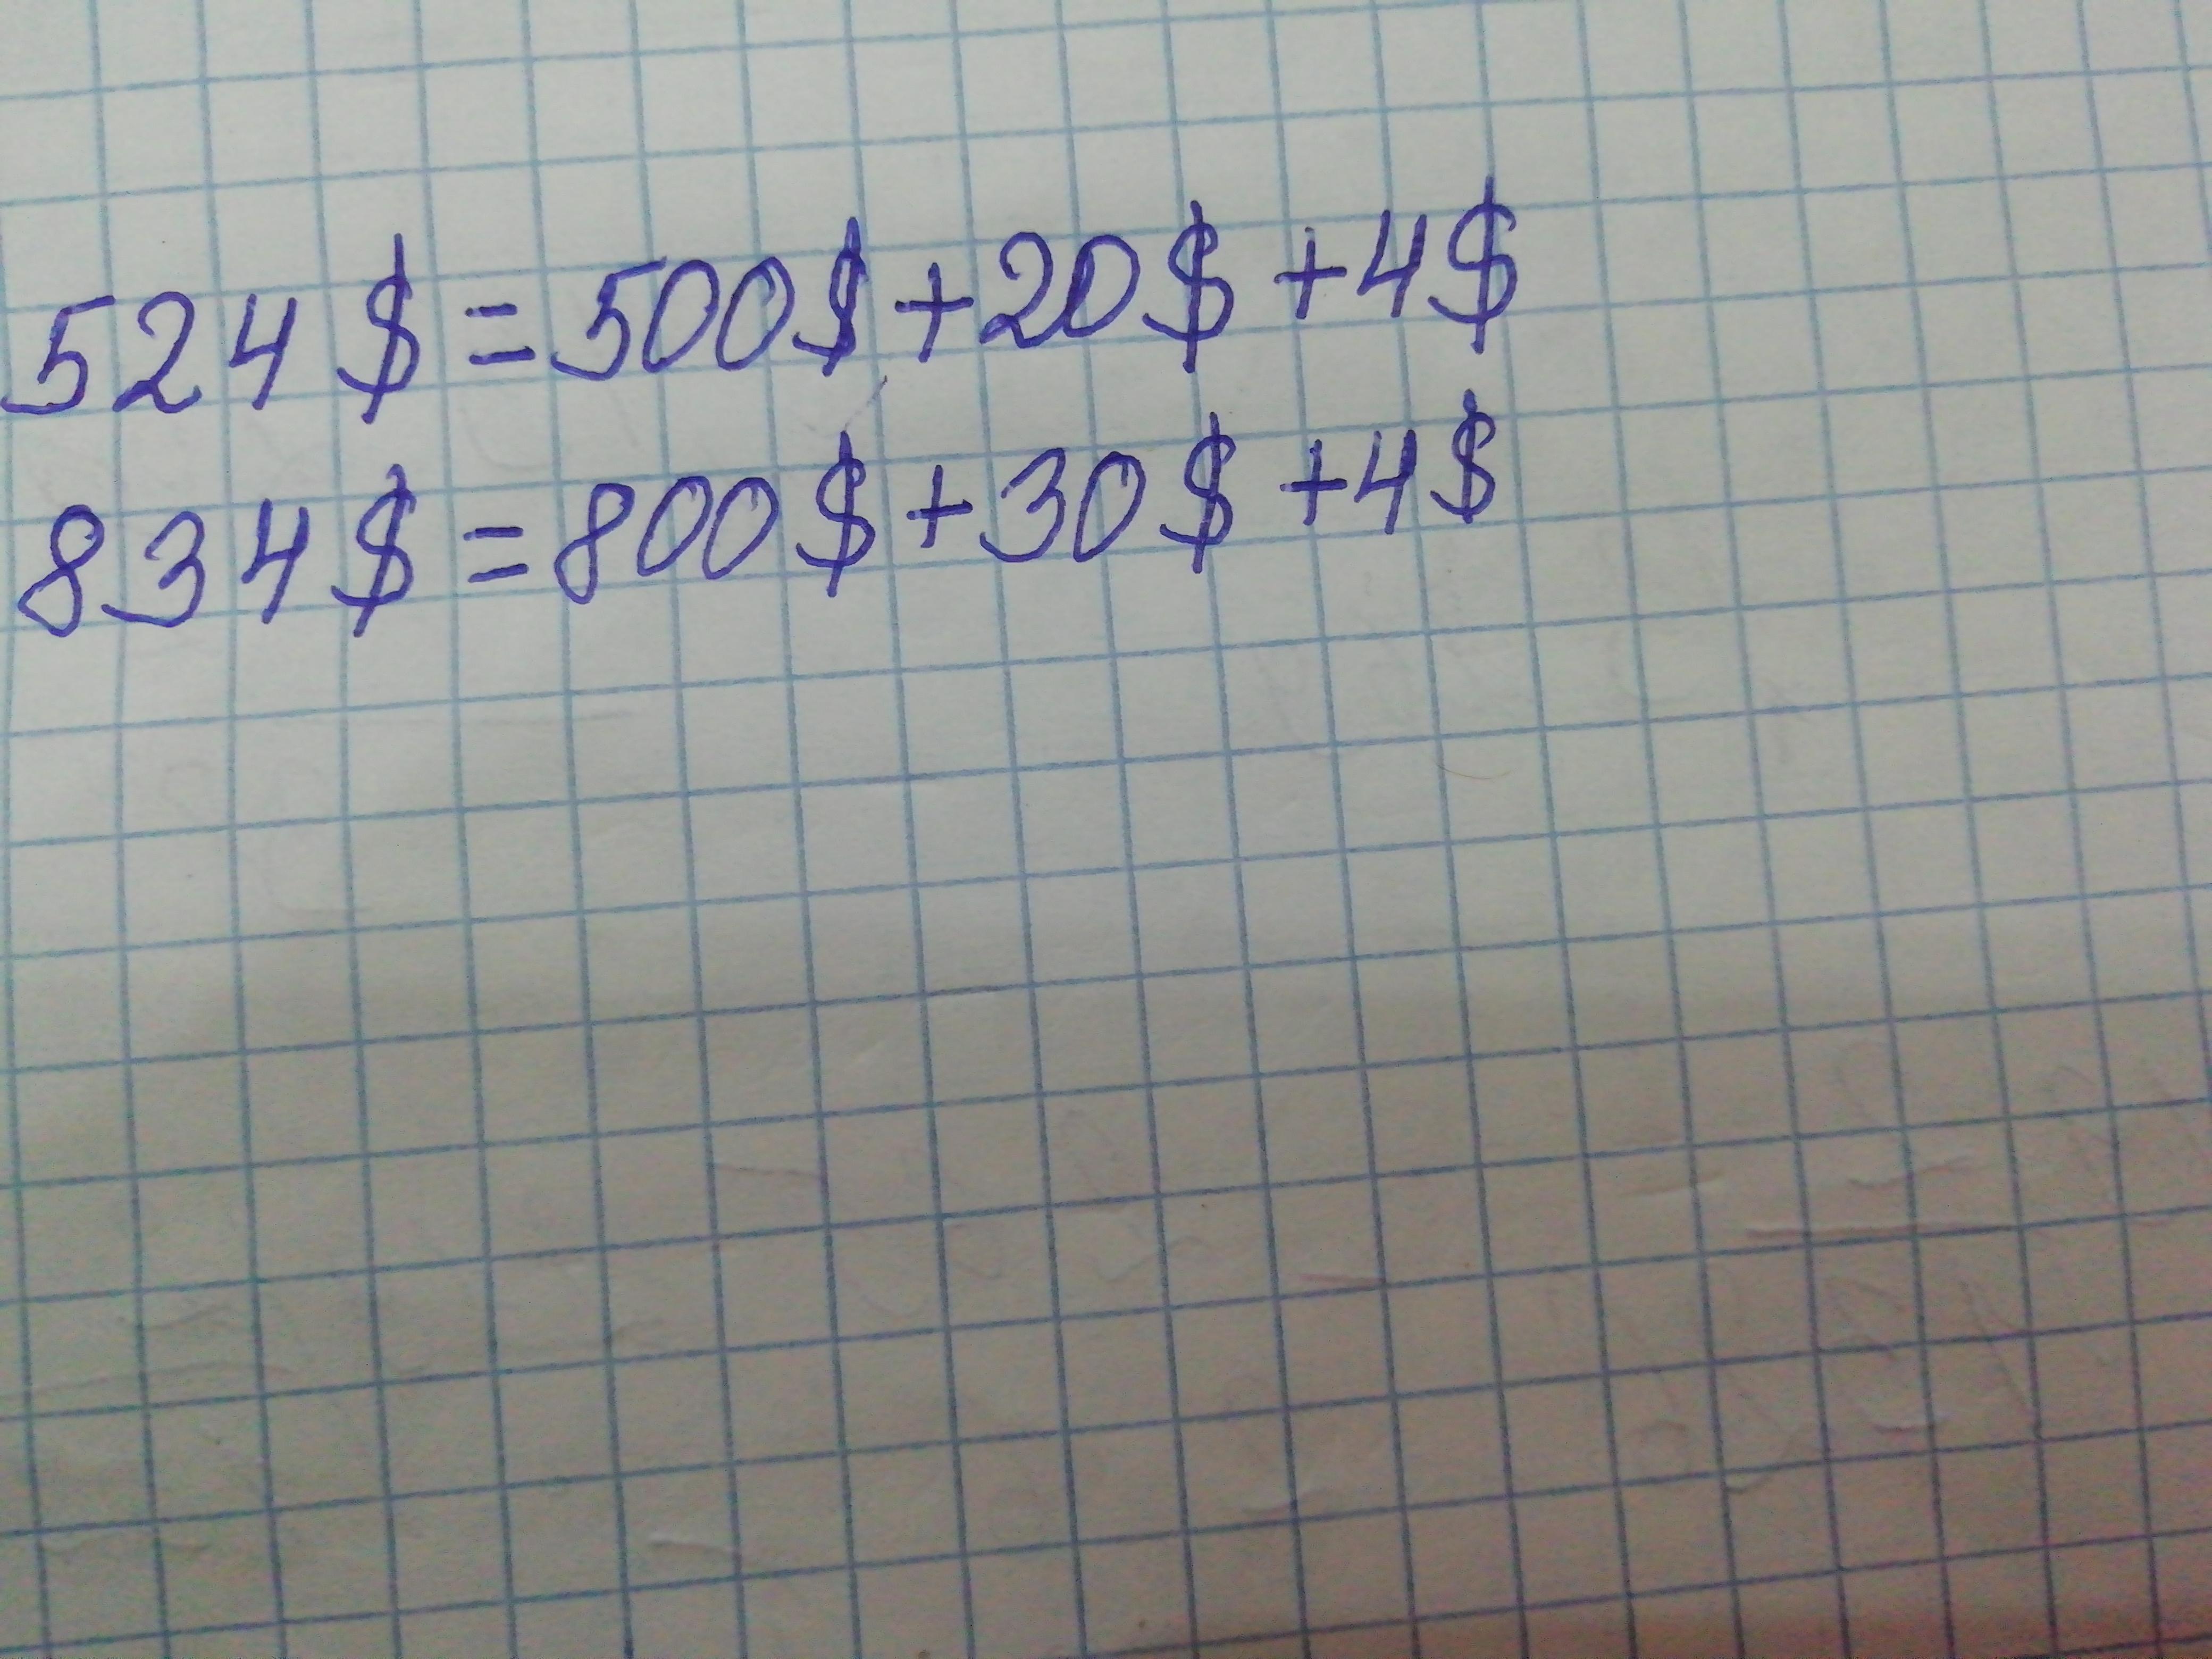 524 $ = 500$ + 20$ + 4$
834$ = 800$ + 30$ + 4$